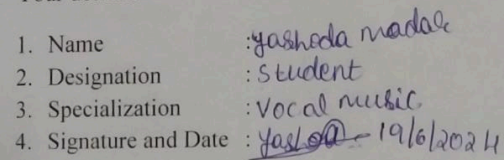 1. Name :yashoda madar
2. Designation : Student
3. Specialization : Vocal music
4. Signature and Date : 19/6/2024